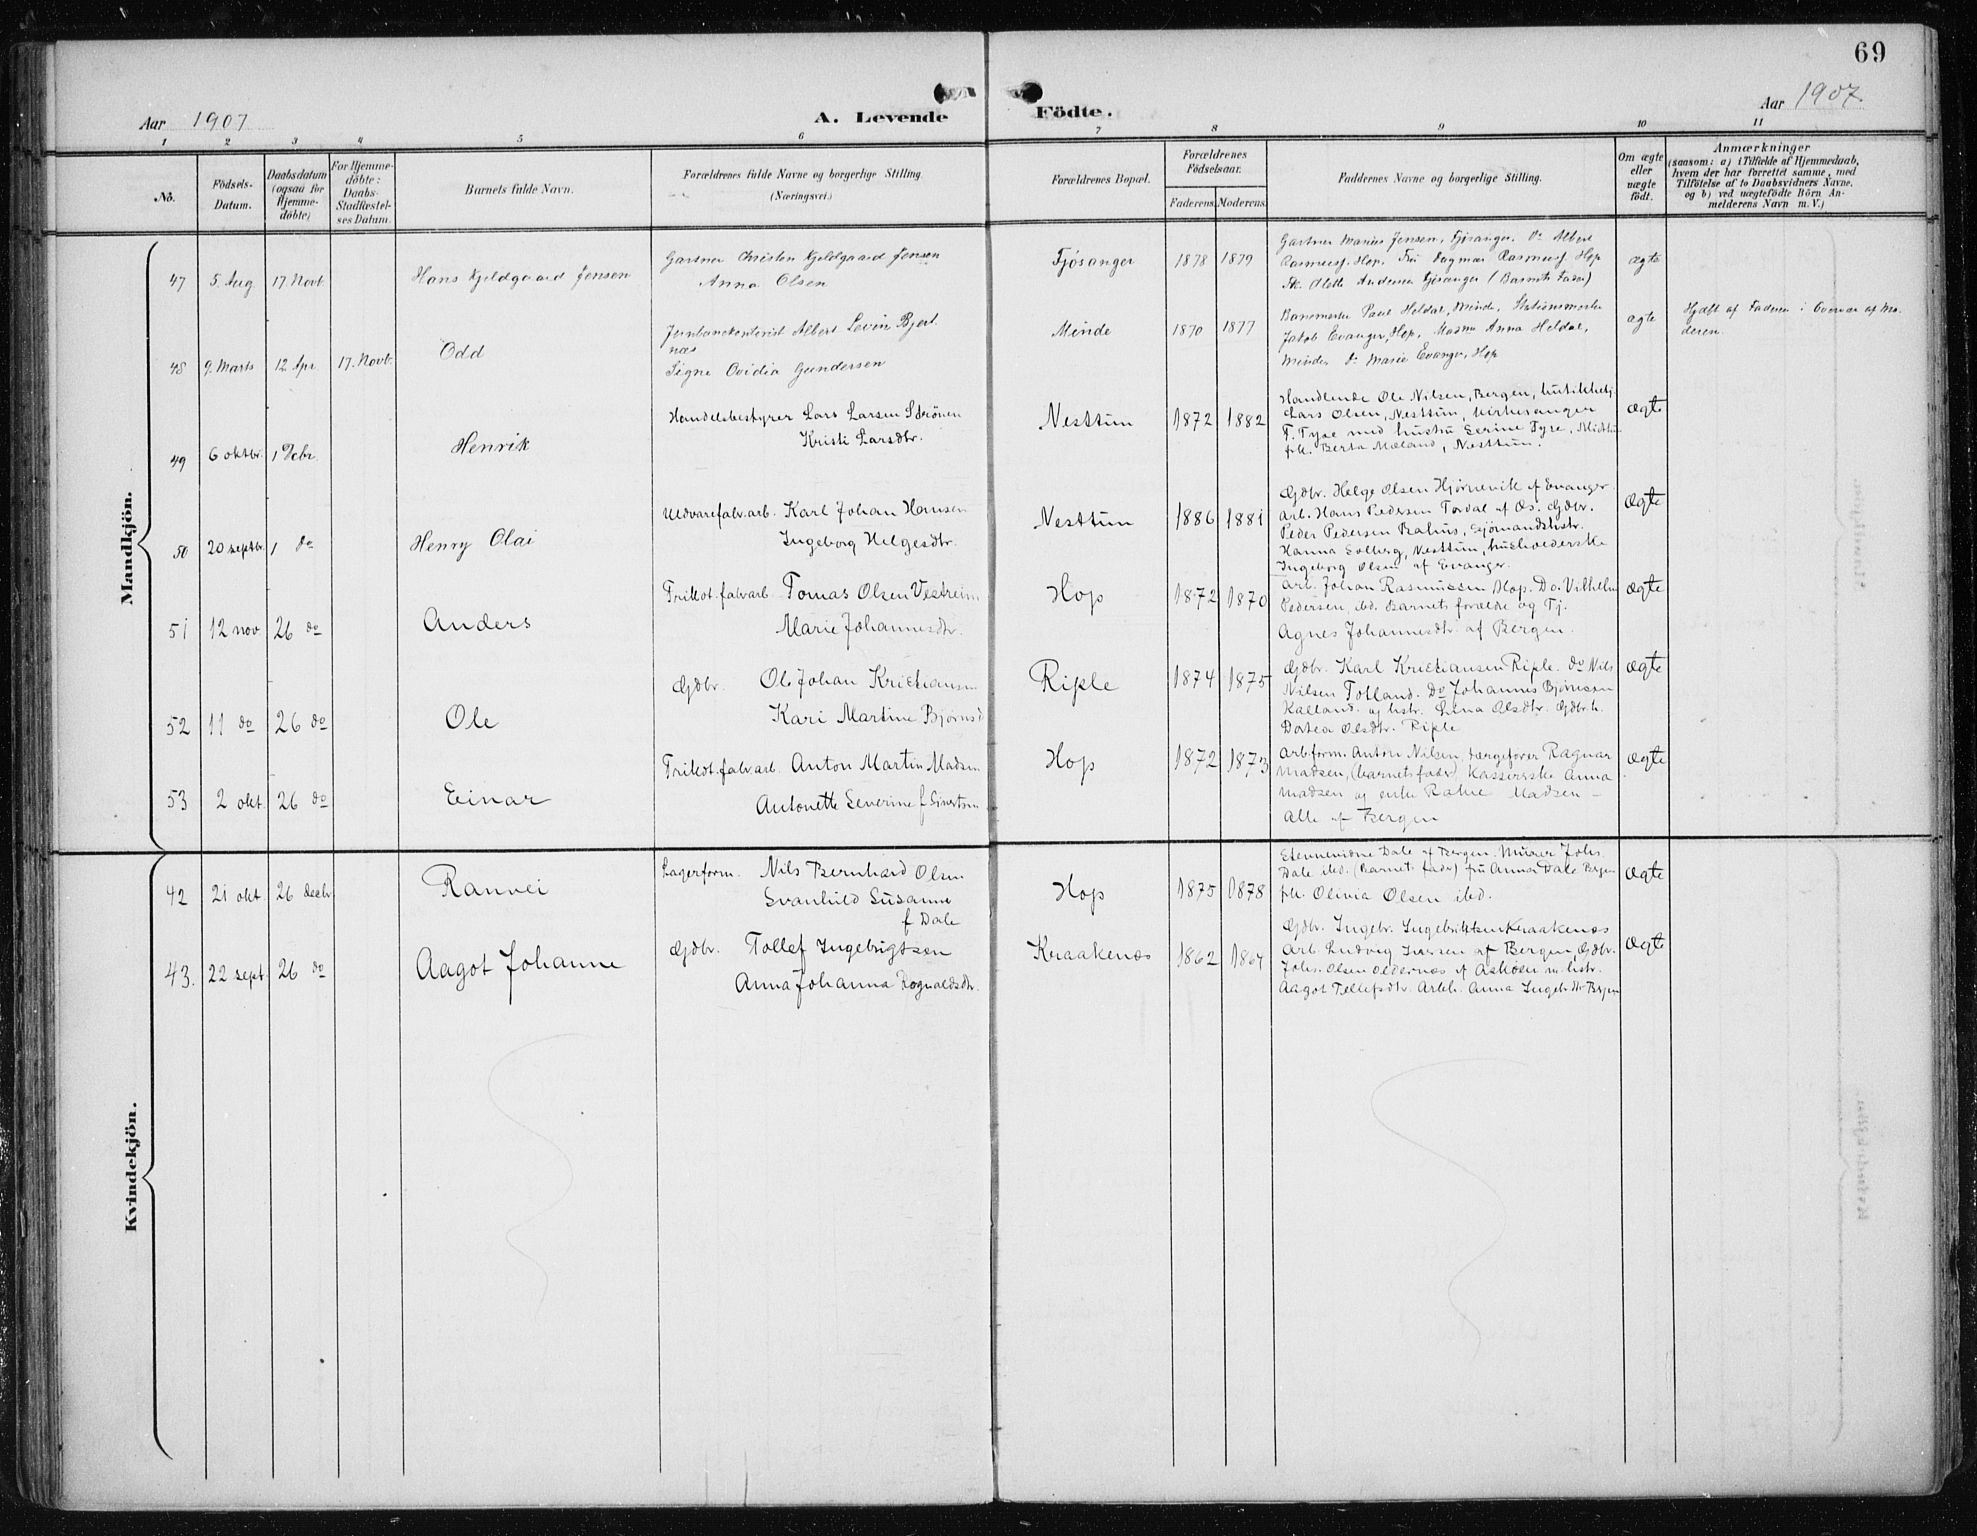 69
Aar 1907
A. Levende Födte.
Aar 1907.
1 2 3 4 5 6 7 8 9 10 11
No.
Födsels-
Datum.
Daabsdatum
(ogsaa for
Hjemme-
döbte)
For Hjemme-
döbte:
Daabs-
Stadfæstel-
ses Datum.
Barnets fulde Navn.
Forældrenes fulde Navne og borgerlige Stilling.
(Næringsvei.)
Forældrenes Bopæl.
Forældrenes
Födselsaar.
Faderens. Moderens.
Faddernes Navne og borgerlige Stilling.
Om ægte
eller
uægte
födt.
Anmærkninger
(saasom: a) i Tilfælde af Hjemmedaab,
hvem der har forrettet samme, med
Tilföielse af to Daabsvidners Navne,
og b) ved uægtefödte Börn An-
melderens Navn m. V.)
Mandkjön.
47 5. Aug 17. Novb. Hans Kjeldgaard Jensen
Gartner Christen Kjeldgaard Jensen
Anna Olsen
Fjösanger 1878 1879
Gartner Marius Jensen, Fjösanger, Do Albert
Rasmuss. Hop, Fru Dagmar Rasmuss Hop
Fk. Olette Andersen Fjösanger (Barnets Fader)
ægte
48 9. Marts 12 Apr 17. Novb. Odd
Jernbanekontorist Albert Levin Bjert
næs
Signe Ovidia Gundersen
Minde 1870 1877
Banemester Paul Heldal, Minde, Stationsmester
Jakob Evanger, Hop, Madm Anna Heldal,
Minde, Do Marie Evanger, Hop
ægte
Hjdbt af Faderen i Overvær af Mo-
deren.
49 6 oktbr. 1 Debr. Henrik
Handelsbestyrer Lars Larsen Strönen
Kristi Larsdtr.
Nesttun 1872 1882
Handlende Ole Nilsen, Bergen, butikbetj.
Lars Olsen, Nesttun, kirkesanger
T. Tyse med hustru Serine Tyse, Nesttun
frk. Berta Mæland, Nesttun.
ægte
50 20 septbr. 1 do Henry Olai
Uldvarefabr.arb. Karl Johan Hansen
Ingeborg Helgesdtr.
Nesttun 1886 1881
Gdbr. Helge Olsen Hjørnevik af Evanger
arb. Hans Pedersen Tordal af Os. Gdbr.
Peder Pedersen Rahus, sjömandshstr.
Hanna Solberg, Nesttun, husholderske
Ingeborg Olsen af Evanger.
ægte
51 12 nov 26 do Anders
Trikot.fabr.arb. Tomas Olsen Vestreim
Marie Johannesdtr.
Hop 1872 1870
arb. Johan Rasmussen Hop. Do. Vilhelm
Pedersen, ibd. Barnets forælde og Tj.
Agnes Johannesdtr. af Bergen.
ægte
52 11 do 26 do Ole
Gdbr. Ole Johan Kristiansen
Kari Martine Bjørnsd
Riple 1874 1875
Gdbr. Karl Kristiansen Riple. do Nils
Nilsen Totland. Do Johannes Bjørnsen
Kalland og hstr. Lina Olsdtr. Gdbr.h.
Dortea Olsdtr. Riple
ægte
53 2 okt. 26 do Einar
Trikot.fabr.arb. Anton Martin Madsen
Antonette Severine f. Sivertsen
Hop 1872 1873
Arb.form. Anton Nilsen, færgefører Ragnar
Madsen, (barnets fader) kassererske Anna
Madsen og enke Madsen –
alle af Bergen
ægte
Kvindekjön.
42 21 okt. 26 decbr Ranvei
Lagerform. Nils Bernhard Olsen
Svanhild Susanne
f. Dale
Hop 1875 1878
Dale af Bergen. Murer Johs.
Dale ibd. (Barnets fader) fru Anna Dale Bergen
frk. Olivia Olsen ibd.
ægte
43. 22 sept. 26 do Aagot Johanne
Gdbr. Tollef Ingebrigtsen
Anna Johanna Rognaldsdtr.
Kraakenæs 1862 1864
Gdbr. Ingebr. Ingebriktsen Kraakenæs
Arb. Ludvig Iversen af Bergen, Gdbr.
Johs. Olsen af Askøen m. hstr.
Aagot Tellefsdtr. Arbh. Anna Ingebr.dtr Bergen
ægte